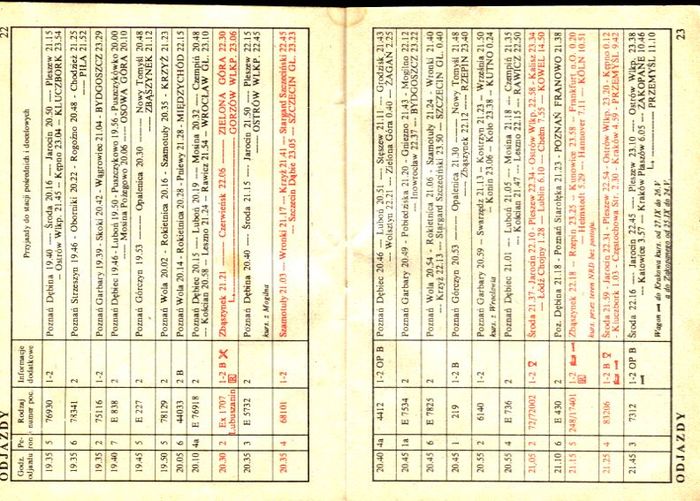 22
ODJAZDY
Godz. odjazdu Pe-ron Rodzaj i numer poc. Informacje dodatkowe Przyjazdy do stacji pośrednich i docelowych
19.35 5 76930 1-2 Poznań Dębina 19.40 — Środa 20.16 — Jarocin 20.50 — Pleszew 21.15
— Ostrów Wlkp. 21.45 — Kępno 23.04 — KLUCZBORK 23.54
19.35 6 78341 2 Poznań Strzeszyn 19.46 — Oborniki 20.22 - Rogoźno 20.48 - Chodzież 21.25
— PIŁA 21.52
19.35 2 75116 1-2 Poznań Garbary 19.39 - Skoki 20.42 - Wągrowiec 21.04 - BYDGOSZCZ 23.29
19.40 7 E 838 2 Poznań Dębiec 19.46 - Luboń 19.50 - Puszczykowo 19.56 - Puszczykówko 20.00
- Mosina Pożegowo 20.06 - OSOWA GÓRA 20.10
19.45 5 E 227 2 Poznań Górczyn 19.53 — Opalenica 20.30 — Nowy Tomyśl 20.48
ZBĄSZYNEK 21.12
19.50 5 78129 2 Poznań Wola 20.02 - Rokietnica 20.16 - Szamotuły 20.35 - KRZYŻ 21.23
20.05 6 44033 2 B Poznań Wola 20.14 - Rokietnica 20.28 - Pniewy 21.28 - MIĘDZYCHÓD 22.15
20.10 4a E 76918 2 Poznań Dębiec 20.15 — Luboń 20.19 — Mosina 20.32 — Czempiń 20.48
— Kościan 20.58 — Leszno 21.24 — Rawicz 21.54 — WROCŁAW GŁ. 23.10
20.30 2 Ex 1707 Lubuszanin 1-2 B Zbąszynek 21.21 — Czerwieńsk 22.06 — ZIELONA GÓRA 22.30
GORZÓW WLKP. 23.06
20.35 3 E 5732 2 Poznań Dębina 20.40 — Środa 21.15 — Jarocin 21.50 — Pleszew 22.15
kurs. z Mogilna — OSTRÓW WLKP. 22.45
20.35 4 68101 1-2 Szamotuły 21.03 — Wronki 21.17 — Krzyż 21.41 — Stargard Szczeciński 22.45
Szczecin Dąbie 23.05 — SZCZECIN GŁ. 23.23
23
ODJAZDY
20.40 4a 4412 1-2 OP B Poznań Dębiec 20.46 — Luboń 20.51 — Stęszew 21.11 — Grodzisk 21.43
— Wolsztyn 22.21 — Zielona Góra 0.40 — ŻAGAŃ 2.25
20.45 1a E 7534 2 Poznań Garbary 20.49 - Pobiedziska 21.20 - Gniezno 21.43 - Mogilno 22.12
— Inowrocław 22.37 — BYDGOSZCZ 23.22
20.45 6 E 7825 2 Poznań Wola 20.54 - Rokietnica 21.06 - Szamotuły 21.24 - Wronki 21.40
— Krzyż 22.13 — Stargard Szczeciński 23.50 — SZCZECIN GŁ. 0.40
20.45 1 219 1-2 B Poznań Górczyn 20.53 — Opalenica 21.30 — Nowy Tomyśl 21.48
— Zbąszynek 22.12 — RZEPIN 23.40
20.55 2 6140 1-2 Poznań Garbary 20.59 — Swarzędz 21.13 — Kostrzyn 21.23 — Września 21.50
kurs. z Wrocławia — Konin 23.06 — Koło 23.38 — KUTNO 0.24
20.55 4 E 736 2 Poznań Dębiec 21.01 — Luboń 21.05 — Mosina 21.18 — Czempiń 21.35
— Kościan 21.47 — Leszno 22.15 — RAWICZ 22.50
21.05 2 72/72002 1-2 Środa 21.37 - Jarocin 22.10 - Pleszew 22.34 - Ostrów Wlkp. 22.58 - Kalisz 23.34
— Łódź Chojny 1.28 — Lublin 6.10 — Chełm 7.55 — KOWEL 14.50
21.10 6 E 430 2 Poz. Dębina 21.18 - Poznań Starołęka 21.23 - POZNAŃ FRANOWO 21.38
21.15 5 248/17401 1-2 Zbąszynek 22.18 — Rzepin 23.25 — Kunowice 23.58 — Frankfurt n.O. 0.20
kurs. przez teren NRD bez postoju — Helmstedt 5.29 — Hannover 7.11 — KÖLN 10.51
21.25 4 83206 1-2 B Środa 21.59 - Jarocin 22.31 - Pleszew 22.54 - Ostrów Wlkp. 23.20 - Kępno 0.12
- Kluczbork 1.03 - Częstochowa Str. 2.30 - Kraków 4.59 - PRZEMYŚL 9.42
21.45 3 7312 1-2 OP B Środa 22.16 — Jarocin 22.45 — Pleszew 23.10 — Ostrów Wlkp. 23.38
— Katowice 3.57 — Kraków Płaszów 6.05 — ZAKOPANE 10.46
PRZEMYŚL 11.10
Wagon do Krakowa kurs. od 27 IX do 26 V
a do Zakopanego od 25 IX do 24 V.